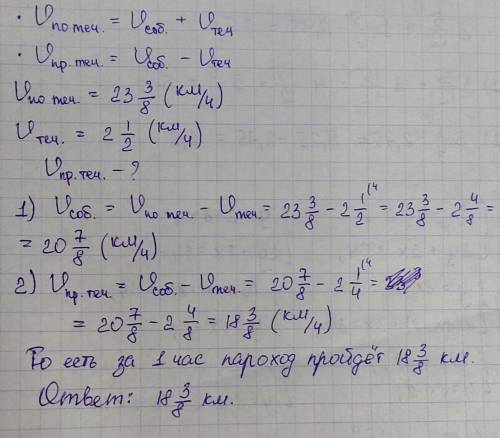 · Vпо теч. = Vсоб. + Vтеч
· Vпр. теч. = Vсоб. - Vтеч
Vпо теч. = 23 3/8 (км/ч)
Vтеч. = 2 1/2 (км/ч)
Vпр. теч. - ?
1) Vсоб. = Vпо теч. - Vтеч. = 23 3/8 - 2 1/2 (4 = 23 3/8 - 2 4/8 =
= 20 7/8 (км/ч)
2) Vпр. теч. = Vсоб. - Vтеч. = 20 7/8 - 2 1/4 (4 =
= 20 7/8 - 2 4/8 = 18 3/8 (км/ч)
То есть за 1 час пароход пройдёт 18 3/8 км.
Ответ: 18 3/8 км.